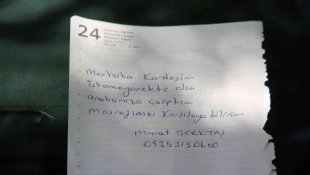 24
Merhaba Kardeşim
istemeyerekte olsa
arabanıza çarptım
masrafınızı Karşılaya bilirim
Murat BEKTAŞ
05353150600